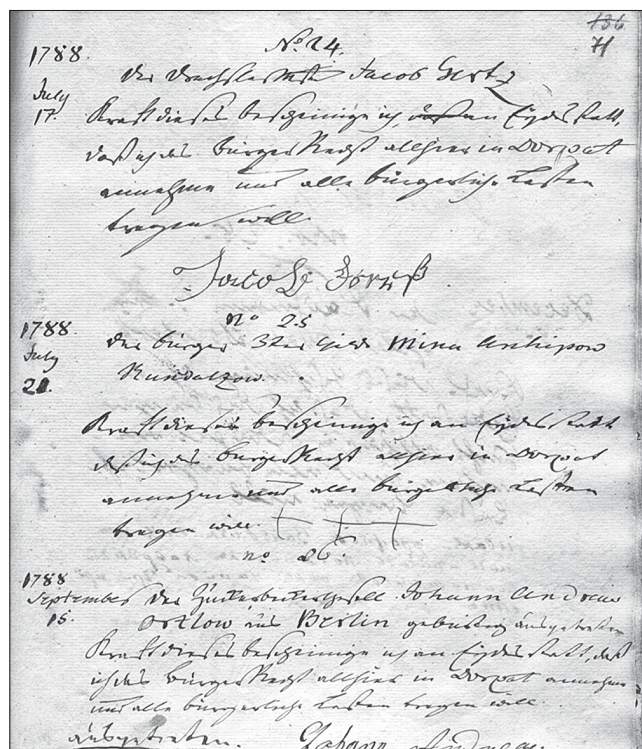 136
71
1788.
July
17.
No. 24.
Der Drechslermstr Jacob
Kraft dieses bescheinige ich an Eydes statt,
daß ich das Bürger Recht allhier in Dorpat
annehme und alle bürgerliche Lasten
tragen will.
Jacob
1788
July
21.
No 25
der Bürger 3ter Gilde Mina Archipow
Kraft dieses bescheinige ich an Eydes statt
daß ich das Bürger Recht allhier in Dorpat
annehme und alle bürgerliche Lasten
tragen will.
no 26.
1788
September
15.
der Zuckerbeckergesell Johann Andreas
Ortlow aus Berlin gebürtig ausgetreten
Kraft dieses bescheinige ich an Eydes statt, daß
ich das Bürger Recht allhier in Dorpat annehme
und alle bürgerliche Lasten tragen will.
ausgetreten. Johann Andreas